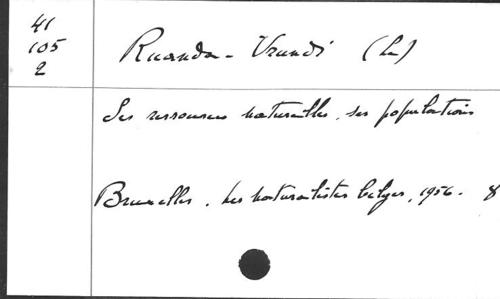 41
105
2
Ruanda-Urundi (Le)
Ses ressources naturelles, ses populations
Bruxelles, Les naturalistes belges, 1956. 8